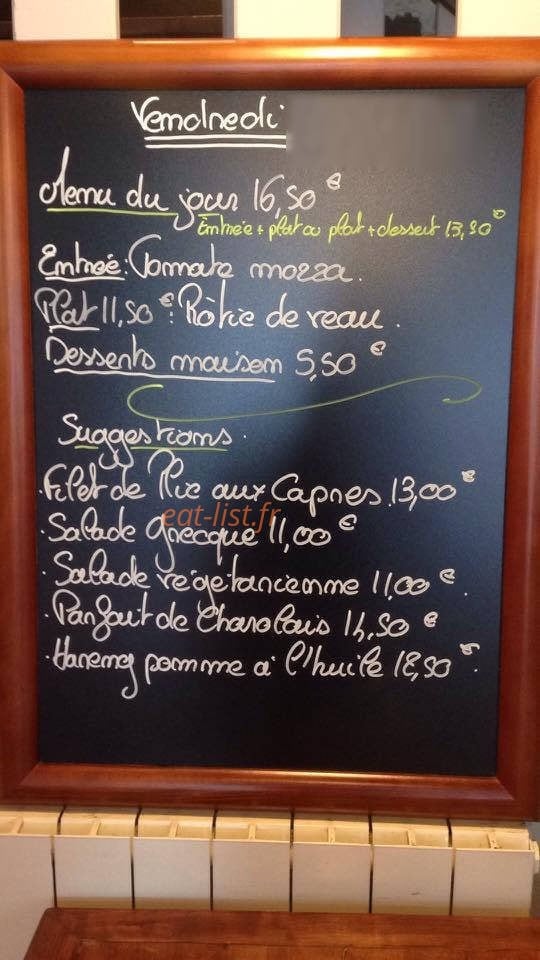 Vendredi
Menu du jour 16,50 €
Entrée + plat ou plat + dessert 13,90 €
Entrée : Tomate mozza.
Plat 11,50 € : Rôtie de veau.
Desserts maison 5,50 €
Suggestions.
. Filet de Plie aux Capres 13,00 €
eat-list.fr
. Salade grecque 11,00 €
. Salade végétarienne 11,00 €.
. Parfait de Charolais 14,50 €
. Hareng pomme à l'huile 12,50 €.